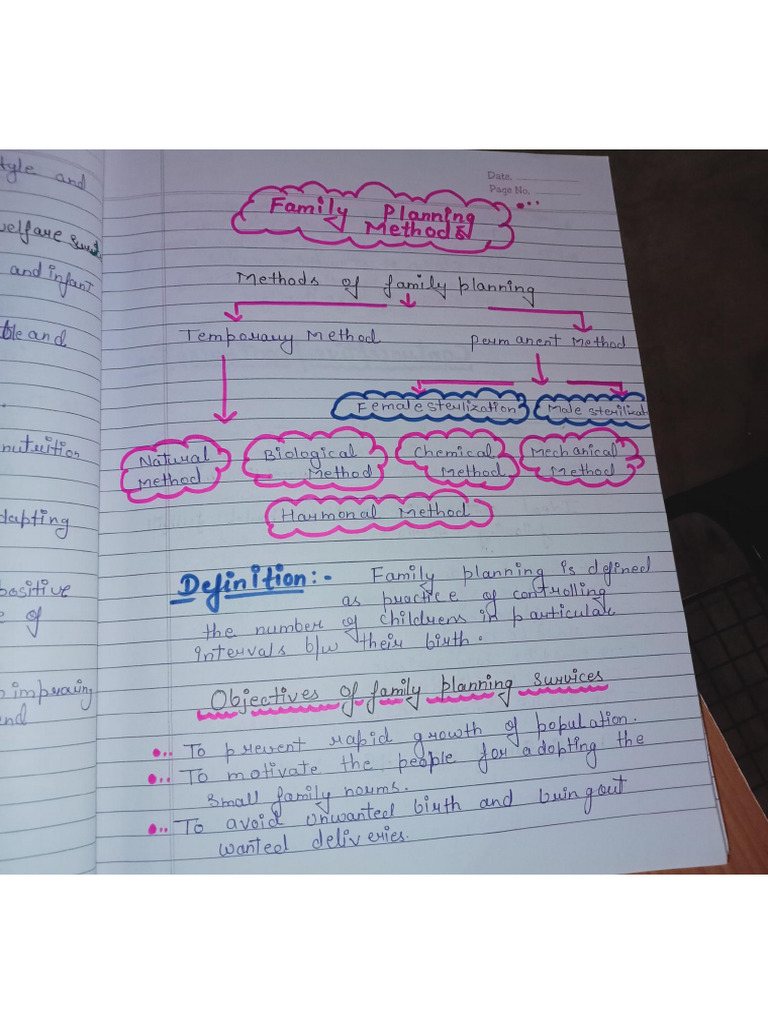 tyle and
welfare
and infant
and
nutrition
dapting
positive
e of
improving
nd
Date.
Page No.
Family Planning
Methods
Methods of family planning
Temporary Method
permanent Method
Female sterlization
Male sterilizat
Natural
Method
Biological
Method
Chemical
Method
Mechanical
Method
Harmonal Method
Definition:- Family planning is defined
as practice of controlling
the number of childrens in particular
intervals b/w their birth.
Objectives of family planning survices
To prevent rapid growth of population.
To motivate the people for adopting the
small family norms.
To avoid unwanted birth and bring out
wanted deliveries.